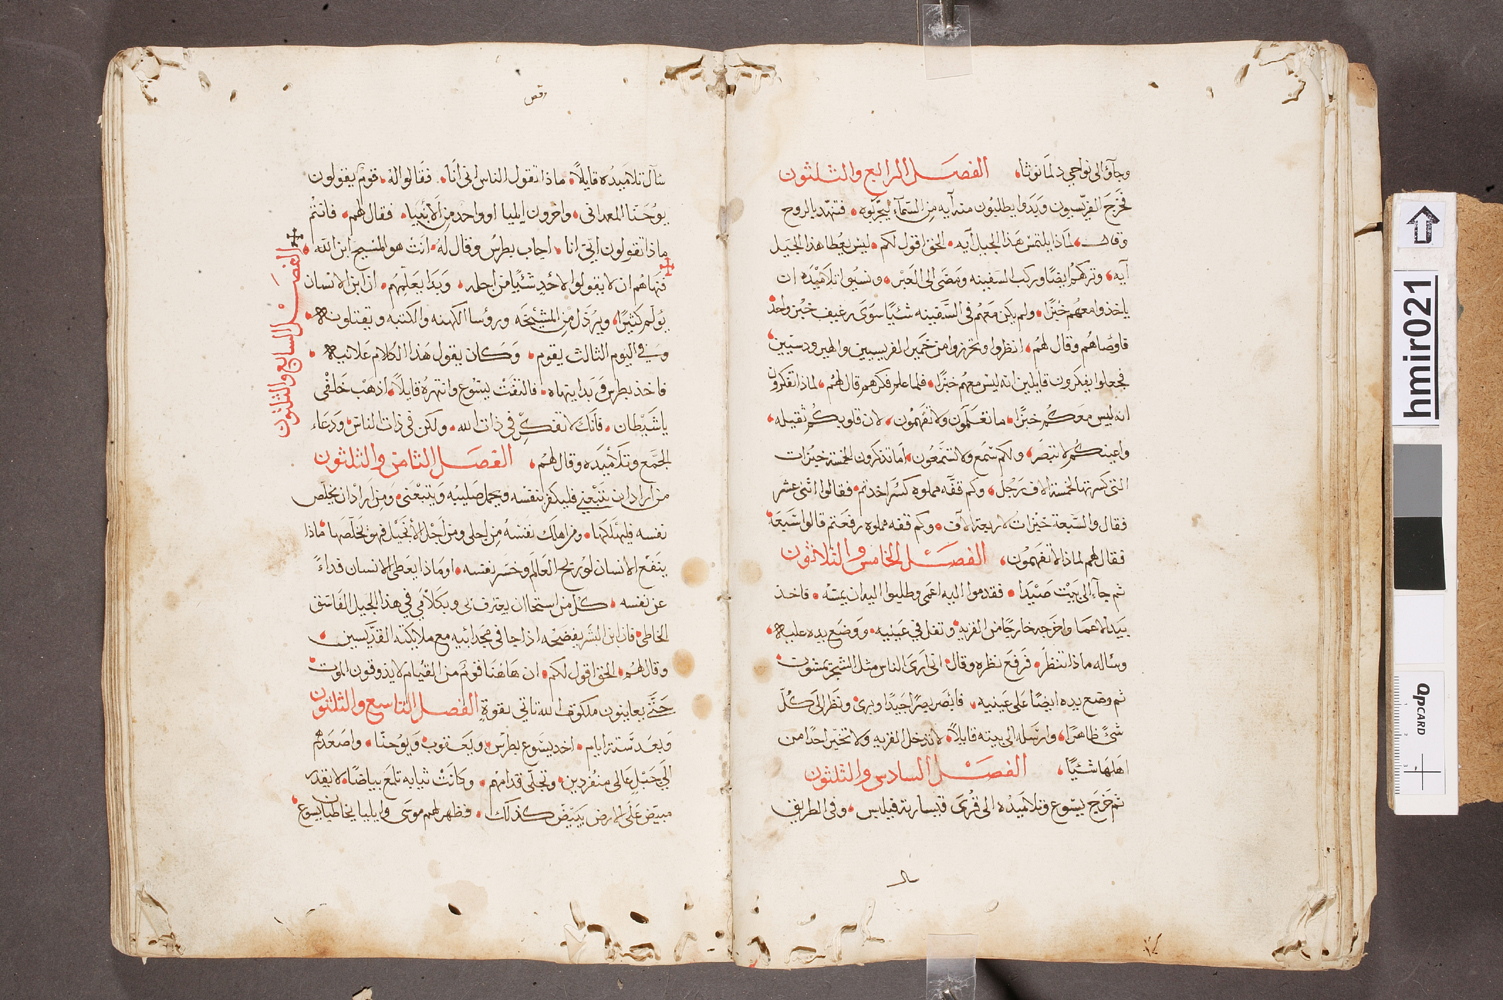 وجآؤ الى نواحي دلمانوثا، الفصل الرابع والثلثون
فخرج الفريسيون وبدوا يطلبون منه آيه من السمآء ليجربوه، فتنهد بالروح
وقال، لماذا يلتمس هذا الجيل آيه، الحق اقول لكم، ليس يعطا هذا الجيل
آيه، وتركهم ايضًا وركب السفينه ومضى الى العبر، ونسيوا تلاميذه ان
ياخذوا معهم خبزًا، ولم يكن معهم في السفينه شئيًا سوى رغيف خبز واحد
فاوصاهم وقال لهم، انظروا وتحرزوا من خمير الفريسيين والهيرودسيين
فجعلوا يفكرون قايلين انه ليس معهم خبزًا، فلما علم فكرهم قال لهم، لماذا تفكرون
انه ليس معكم خبزًا، ما تعلمون ولا تفهمون، لان قلوبكم ثقيله،
واعينكم لا تبصر، ولكم سمع ولا تسمعون، اما تذكرون الخمسة خبزات
التى كسرتها لخمسة الاف رجل، وكم قفه مملوه كسرًا اخذتم، فقالوا اثنى عشر
فقال والسبعة خبزات لاربعة الآف، وكم قفه مملوه رفعتم قالوا سبعة
فقال لهم لماذا لا تفهمون، الفصل الخامس والثلاثون
ثم جآء الى بيت صيدا، فقدموا اليه اعمى وطلبوا اليه ان يمسه، فاخذ
بيد الاعما واخرجه خارجًا من القريه وتفل في عينيه، ووضع يده عليه
وساله ماذا تنظر، فرفع نظره وقال، انى ارى الناس مثل الشجر يمشون
ثم وضع يده ايضًا على عينيه، فابصر بصرًا جيدًا وبرئ، ونظر الى كل
شئ ظاهرًا، وارسله الى بيته قايلاً، لا تدخل القريه ولا تخبر احدا من
اهلها شئيًا، الفصل السادس والثلثون
ثم خرج يسوع وتلاميذه الى قرى قيسارية فيلبس، وفى الطريق
سآل تلاميذه قايلاً، ماذا تقول الناس انى انا، فقالوا له، قوم يقولون
يوحنا المعمدانى، واخرون ايليا او واحد من الانبيا، فقال لهم، فانتم
ماذا تقولون انى انا، اجاب بطرس وقال له، انت هو المسيح ابن الله
فنهاهم ان لا يقولوا لاحد شئيًا من اجله، وبدا يعلمهم، ان ابن الانسان
يولم كثيرًا، ويرذل من المشيخه وروسا الكهنه والكتبه ويقتلونه
وفي اليوم الثالث يقوم، وكان يقول هذا الكلام علانيه،
فاخذ بطرس وبدا ينهاه، فالتفت يسوع وانتهره قايلاً، اذهب خلفى
يا شيطان، فانك لا تفكر في ذات الله، ولكن في ذات الناس، ودعاء
الجمع وتلاميذه وقال لهم، الفصل الثامن والثلثون
من اراد ان يتبعني فليكفر بنفسه ويحمل صليبه ويتبعنى، ومن اراد ان يخلص
نفسه فليهلكها، ومن اهلك نفسه من اجلى ومن اجل الانجيل فهو يخلصها، ماذا
ينفع الانسان لو ربح العالم وخسر نفسه، او ماذا يعطى الانسان فداءً
عن نفسه، كل من استحا ان يعترف بى وبكلامي في هذا الجيل الفاسق
الخاطى، فان ابن البشر يفضحه اذا جا في مجد ابيه مع ملايكته القديسين،
وقال لهم، الحق اقول لكم، ان هاهنا قومًا من القيام لا يذوقون الموت
حتى يعاينون ملكوت الله تاتى بقوة، الفصل التاسع والثلثون
وبعد ستة ايام، اخذ يسوع بطرس، ويعقوب، ويوحنا، واصعدهم
الى جبل عالى منفردين، وتجلى قدامهم، وكانت ثيابه تلمع بياضًا، لا يقدر
مبيض على الارض يبيض كذلك، فظهر لهم موسى وايليا يخاطبان يسوع
الفصل السابع والثلثون
hmir021
QPCARD